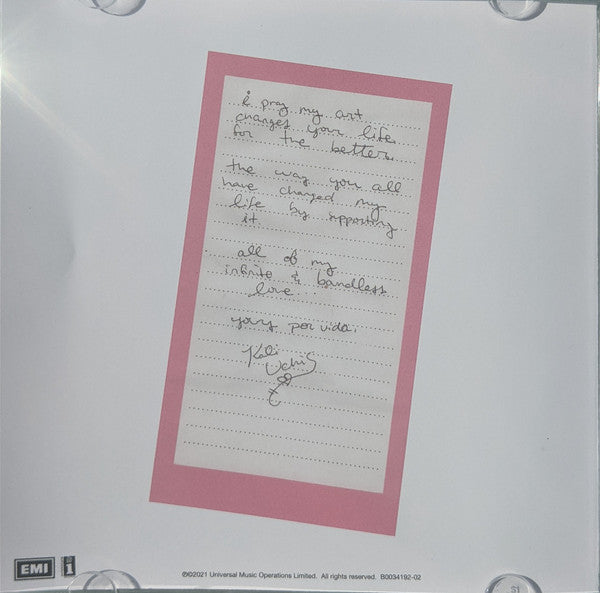 i pray my art
changes your life
for the better
the way you all
have changed my
life by supporting
it
all of my
infinite & boundless
love...
yours por vida.
Kali
Uchis
EMI
1
℗©2021 Universal Music Operations Limited. All rights reserved. B0034192-02